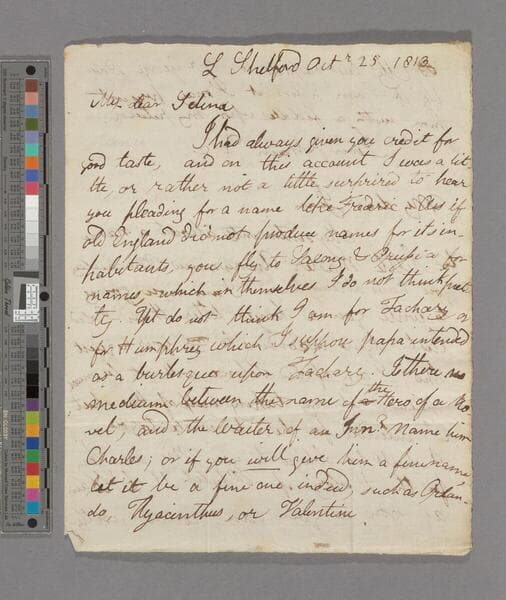 L Shelford Octr 25 1813
My dear Selina
I had always given you credit for
good taste, and on this account I was a lit
tle, or rather not a little surprized to hear
you pleading for a name like Fredric as if
old England did not produce names for its in-
habitants, you fly to Saxony & Prussia for
names, which in themselves I do not think pret
ty. Yet do not think I am for Zachary or
for Humphrey which I suppose papa intended
as a burlesque upon Zachary. Is there no
medium between the name of a the Hero of a No
vel, and the Waiter of an Inn? Name him
Charles; or if you will give him a fine name
let it be a fine one indeed, such as Orlan-
do, Hyacinthus, or Valentine